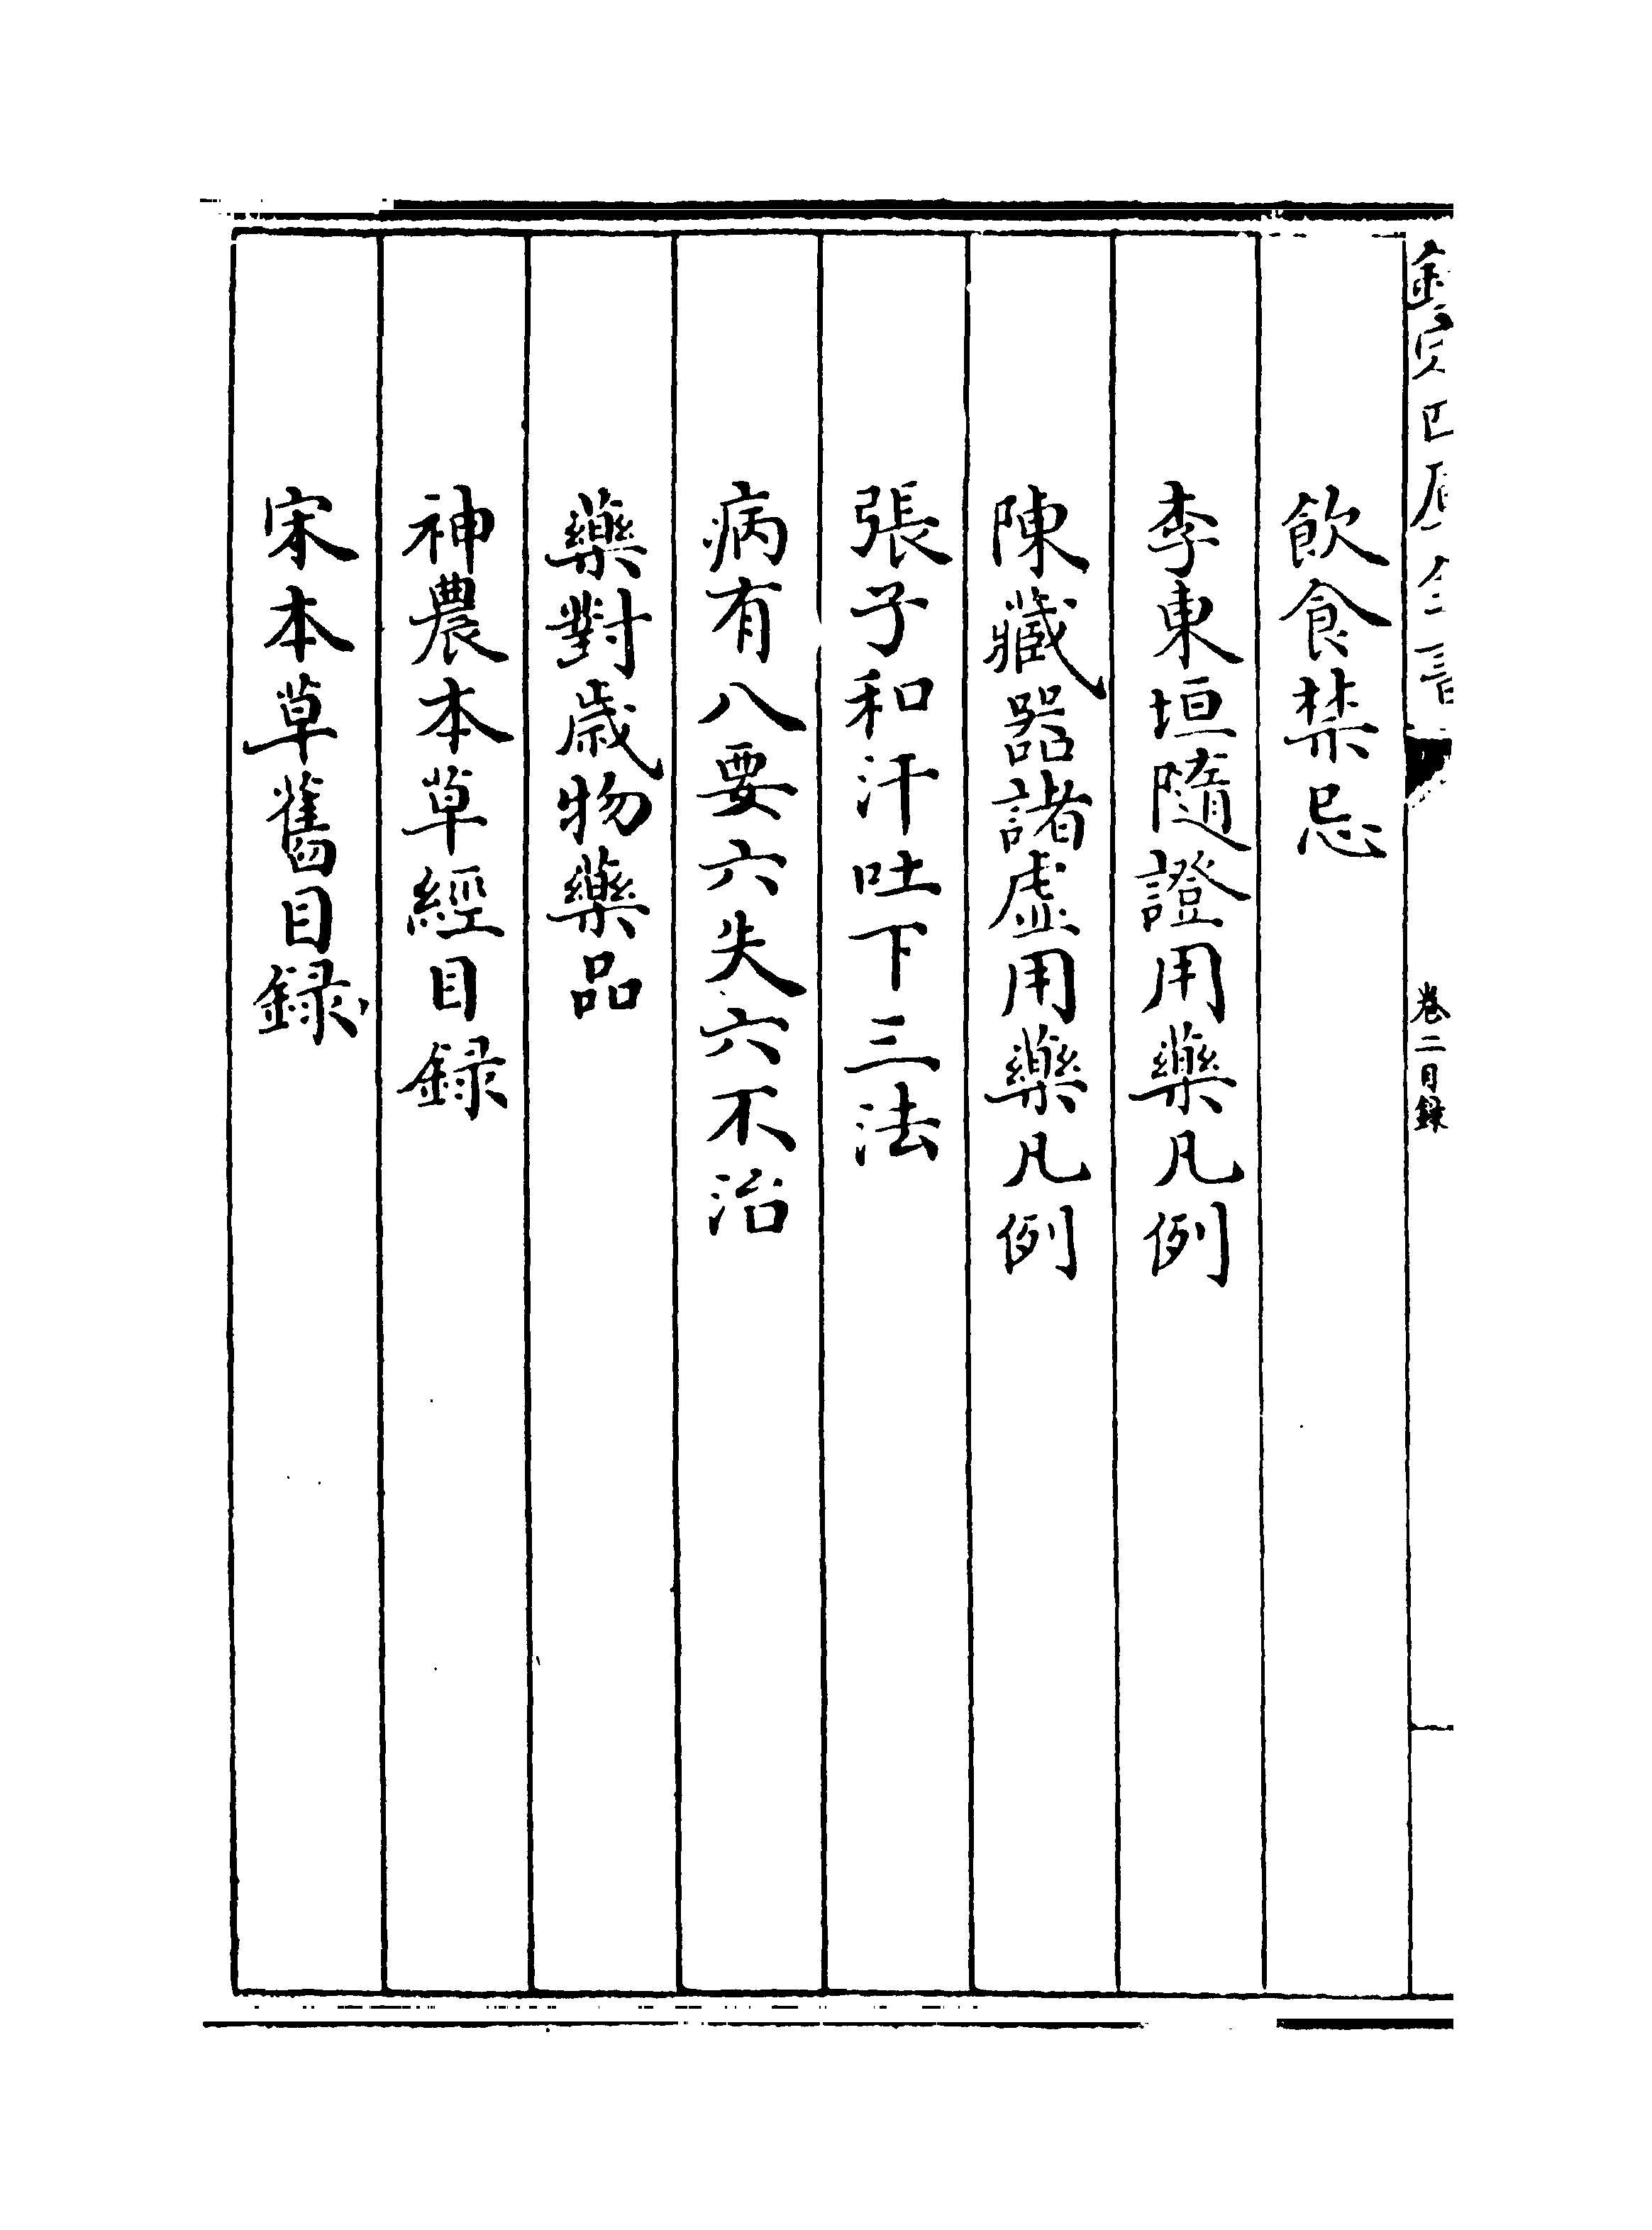 欽定四庫全書
卷二目録
飲食禁忌
李東垣隨證用藥凡例
陳藏器諸虛用藥凡例
張子和汗吐下三法
病有八要六失六不治
藥對歲物藥品
神農本草經目録
宋本草舊目録